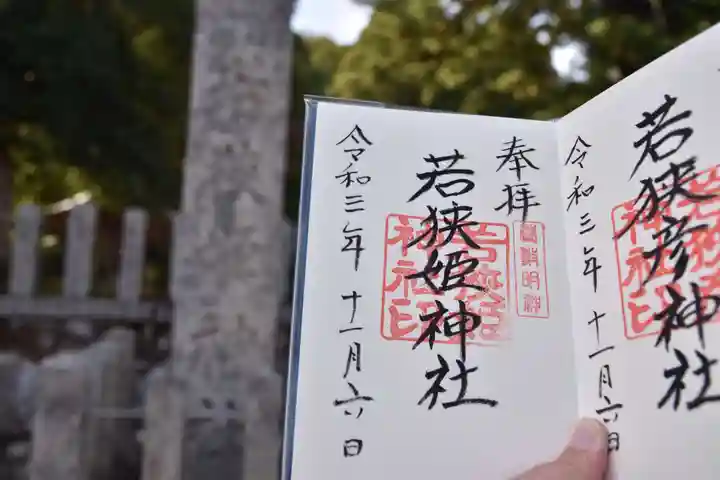 若狭彦神社
令和三年 十一月六日
奉拝
若狭姫神社
令和三年 十一月六日